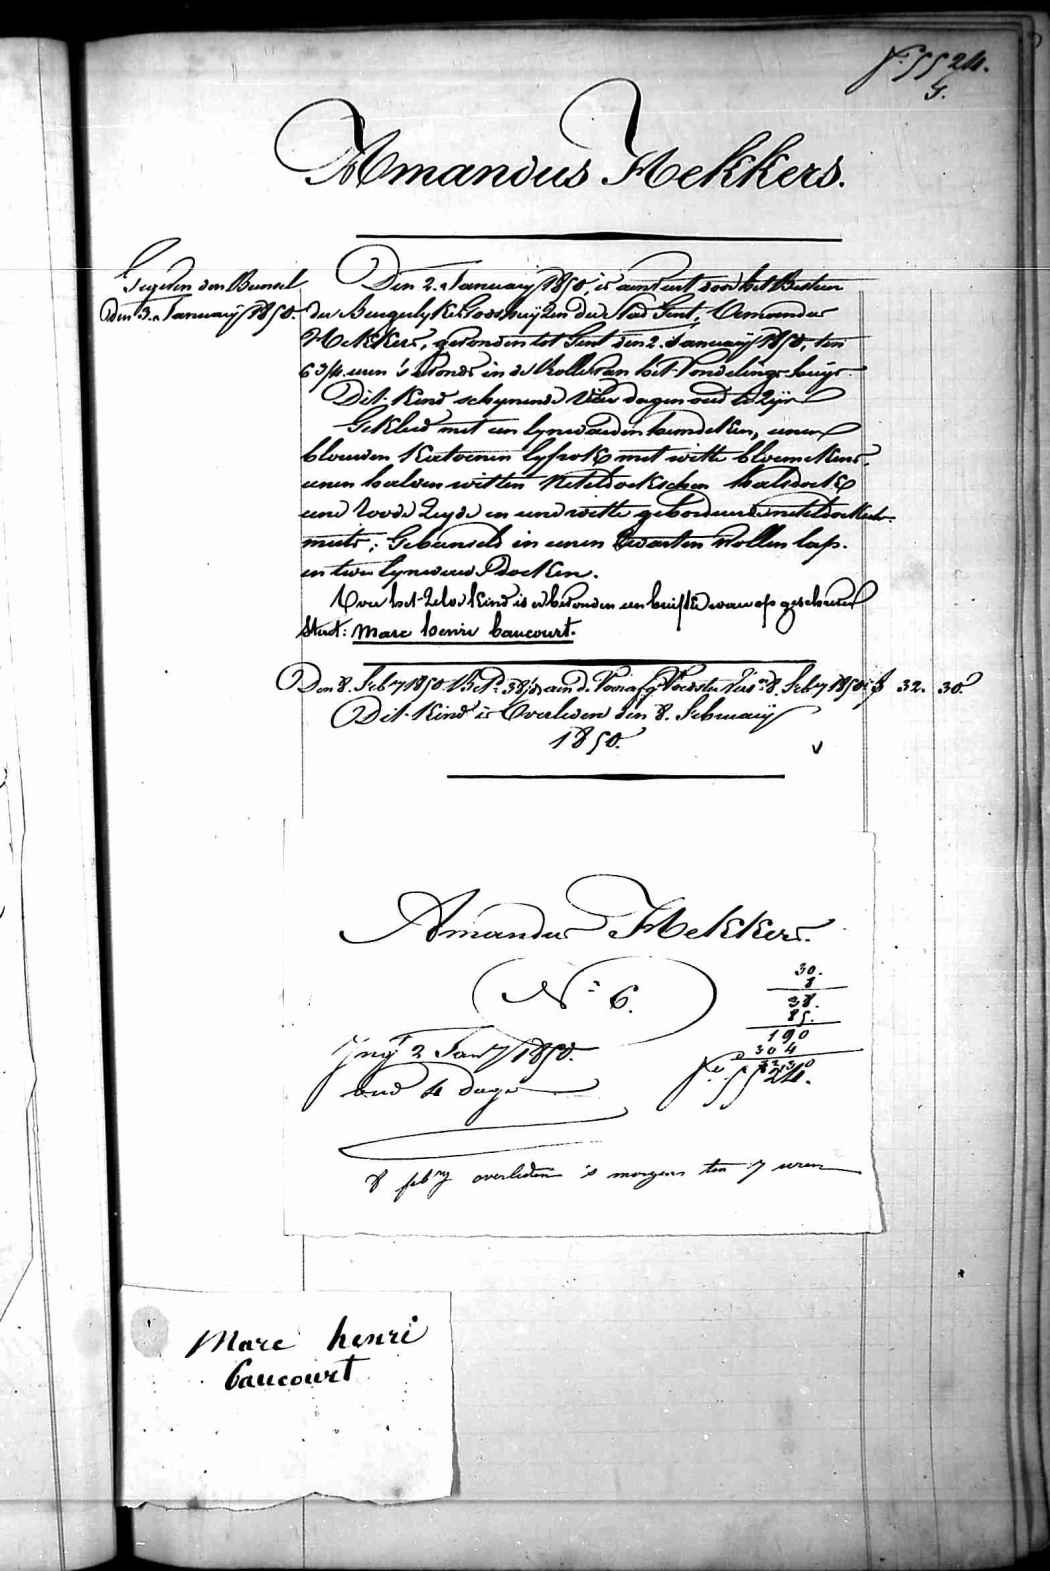 F.º 5524.
5.
Amandus Hekkers.
Gegeven den Bunsel
den 3. January 1850.
Den 2. January 1850, is aenveert door het Bestuer
der Burgerlyke Godshuijzen der Stad Gent, Amandus
Hekkers, gevonden tot Gent den 2. January 1850, ten
6 3/4 uren 's avonds in de Rolle van het Vondelings-huijs.
Dit Kind schynende vier dagen oud te zyn
Gekleed met een lynwaeden hemdeken, eenen
blauwen Katoenen lyfrok met witte bloemekens,
eenen halven witten Neteldoekschen halsdoek
eene roode zeyde en eene witte geborduerde neteldoeksche
muts; Gebunseld in eenen zwarten wollen lap.
en twee lynwaed Doeken.
Van het zelve kind is er bevonden een briefke waer op geschreven
staet: Marc henri baucourt.
Den 8. Feb.ry 1850 Bet. 38 d. aen d. Voedster 8. Feb.ry 1850 f 32. 30.
Dit Kind is Overleden den 8. February
1850.
v
Amandus Hekkers.
N.º 6.
30.
8
38.
85.
190
304
3230
Ing.t 2 Jan.y 1850.
oud 4 dage
F.º 5524.
8 feb.ry overleden 's morgens ten 7 uren
Marc henri
baucourt